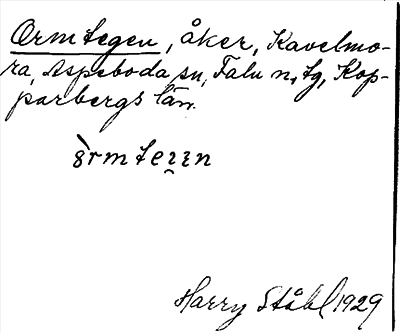 Ormtegen, åker, Kavelmo-
ra, Aspeboda sn, Falu n. tg, Kop-
parbergs län.
Harry Ståhl 1929